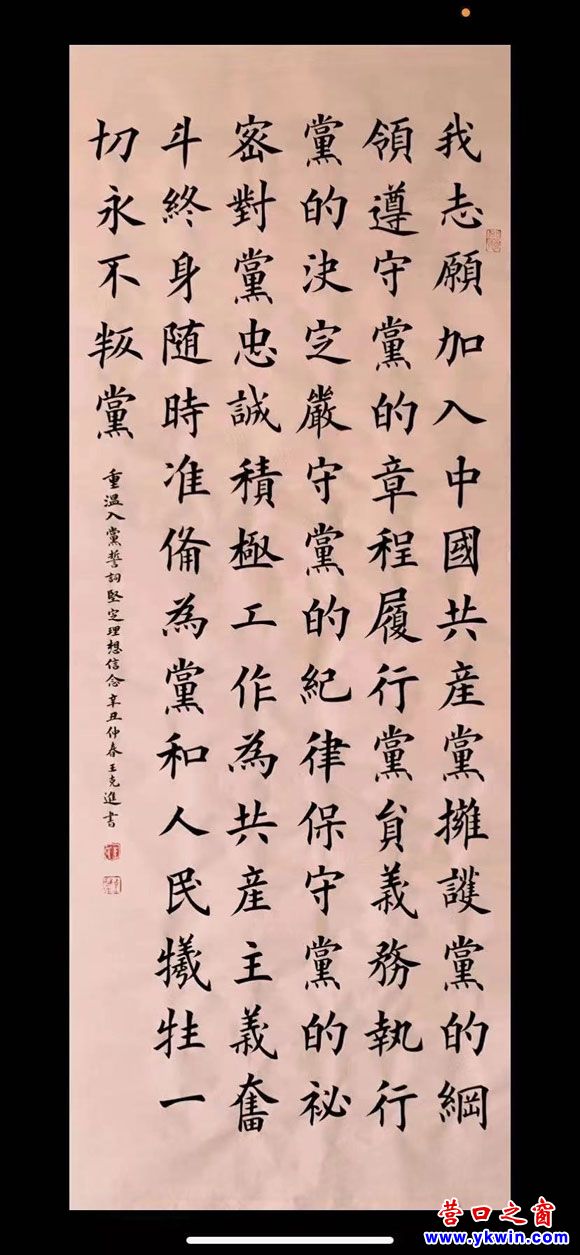 我志願加入中國共産黨擁護黨的綱
領遵守黨的章程履行黨員義務執行
黨的決定嚴守黨的紀律保守黨的祕
密對黨忠誠積極工作為共産主義奮
斗終身随時准備為黨和人民犧牲一
切永不叛黨
重溫入黨誓詞堅定理想信念辛丑仲春王克進書
营口之窗
www.ykwin.com